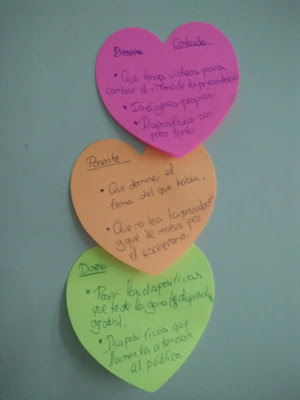 Contenido
• Que tenga videos para
cambiar el ritmo de la presentación
• Imágenes propias
• Diapositivas con
poco texto
Ponente
• Que domine el
tema del que habla.
• Que no lea la presentación
y que se mueva por
el escenario
Diseño
• Poner las diapositivas
que todo la gana
gratis).
• Diapositivas que
llamen la atención
al público